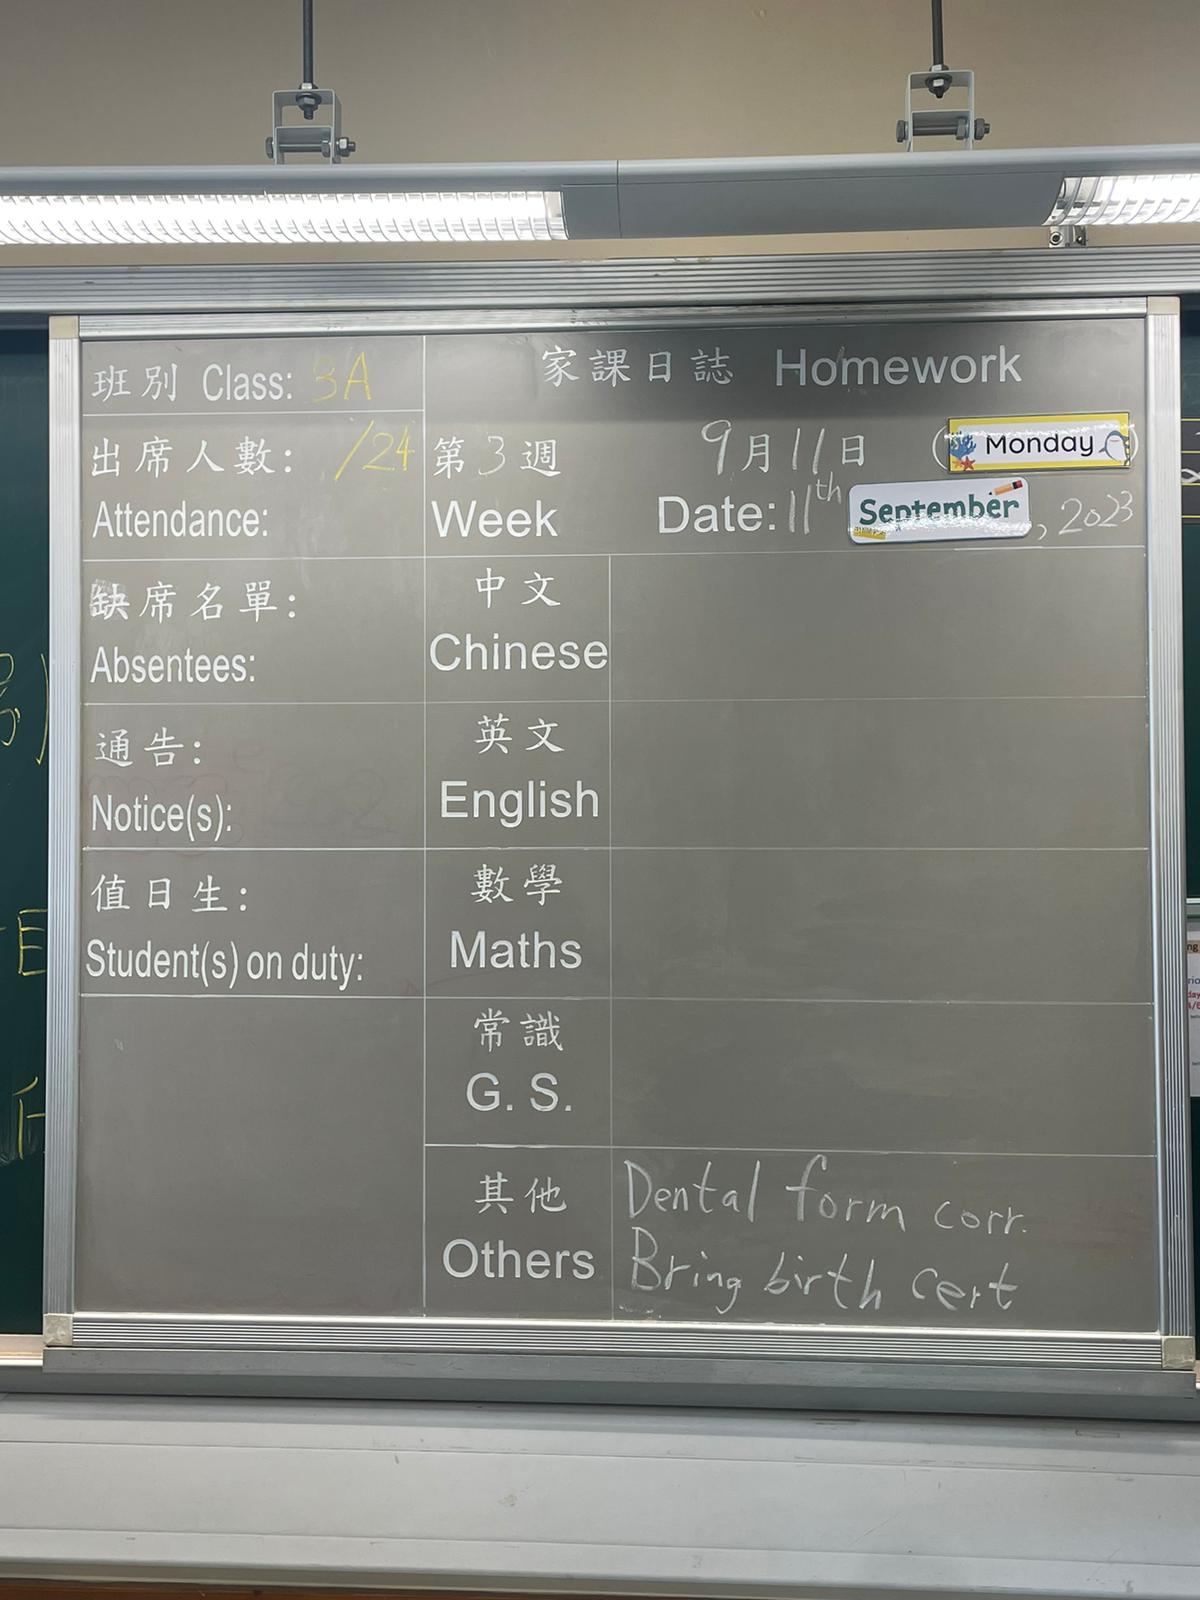 班別 Class: 3A
家課日誌 Homework
出席人數: /24
Attendance:
第3週
Week
9月11日 (Monday)
Date: 11th September, 2023
缺席名單:
Absentees:
中文
Chinese
通告:
Notice(s):
英文
English
值日生:
Student(s) on duty:
數學
Maths
常識
G. S.
其他
Others
Dental form corr.
Bring birth cert